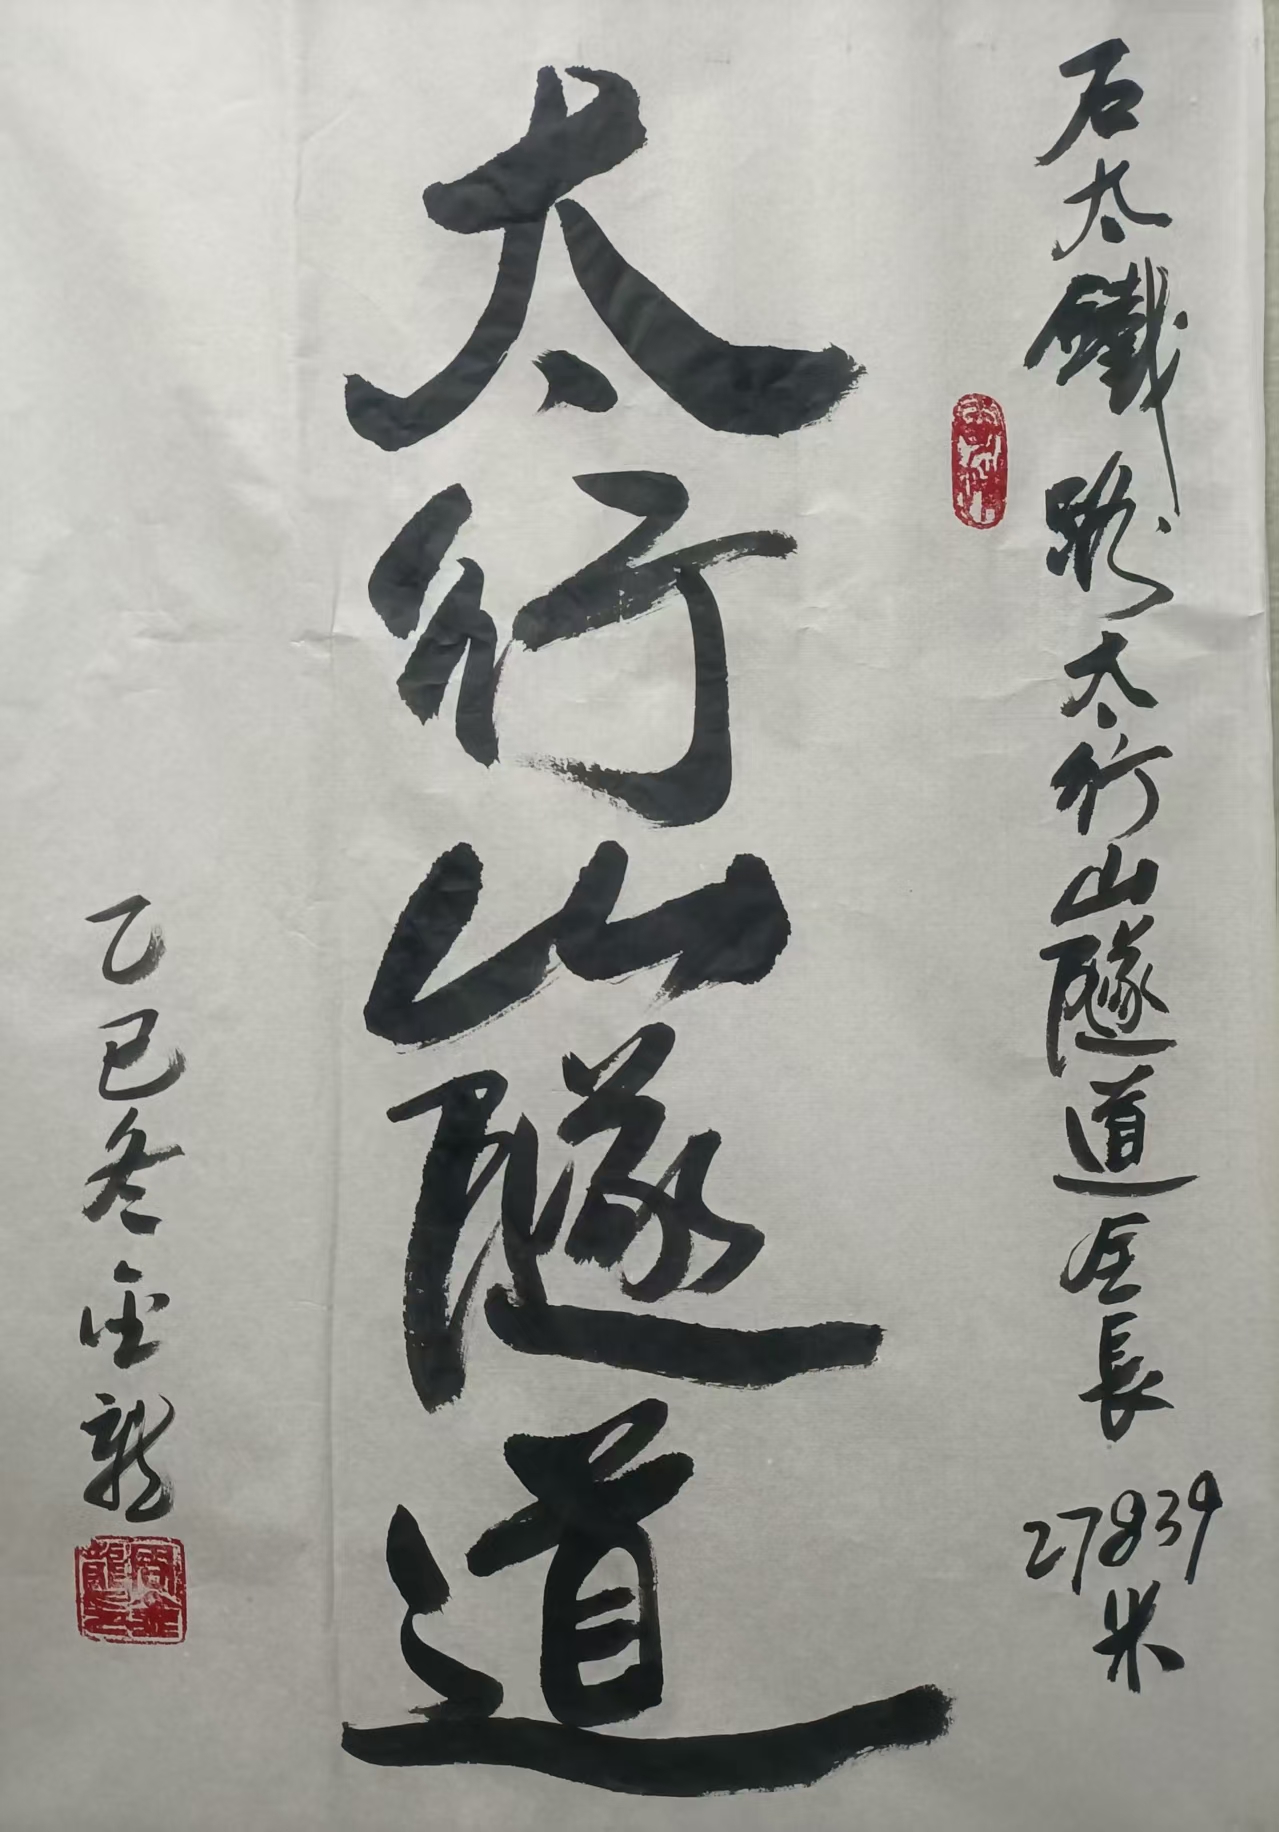 石太鐵路太行山隧道全長27839米
太行山隧道
乙巳冬金龍